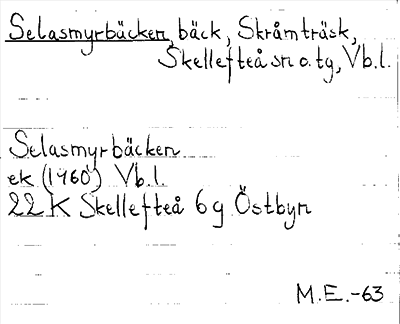 Selasmyrbäcken, bäck, Skråmträsk,
Skellefteå sn o. tg, Vb.l.
Selasmyrbäcken
ek (1960) Vb.l.
22 K Skellefteå 6 g Östbyn
M.E.-63